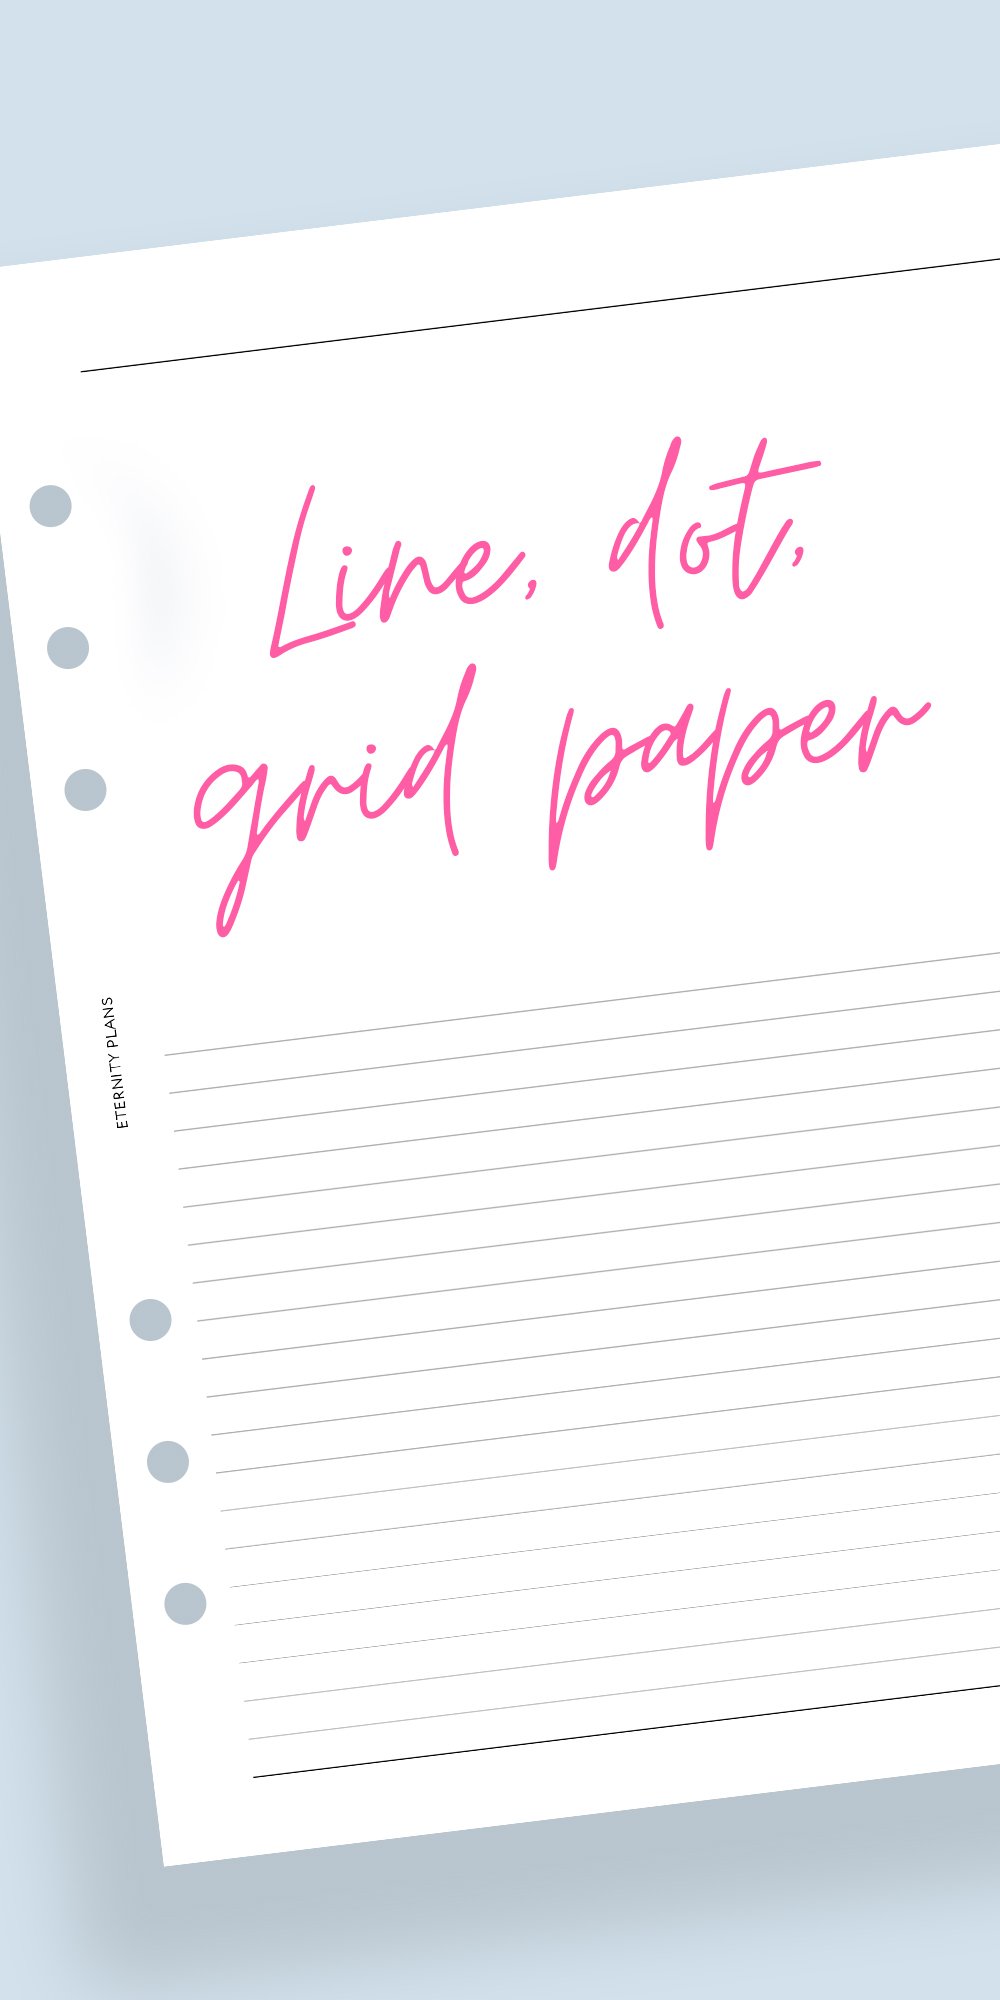 Line, dot,
grid paper
ETERNITY PLANS